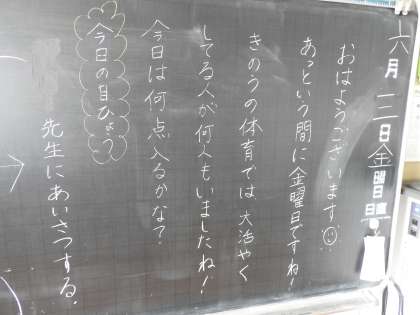 六月三日金曜日
日直
おはようございます
あっという間に金曜日ですね!
きのうの体育では、大活やく
してる人が何人もいましたね!
今日は何点入るかな?
今日の目ひょう
先生にあいさつする。